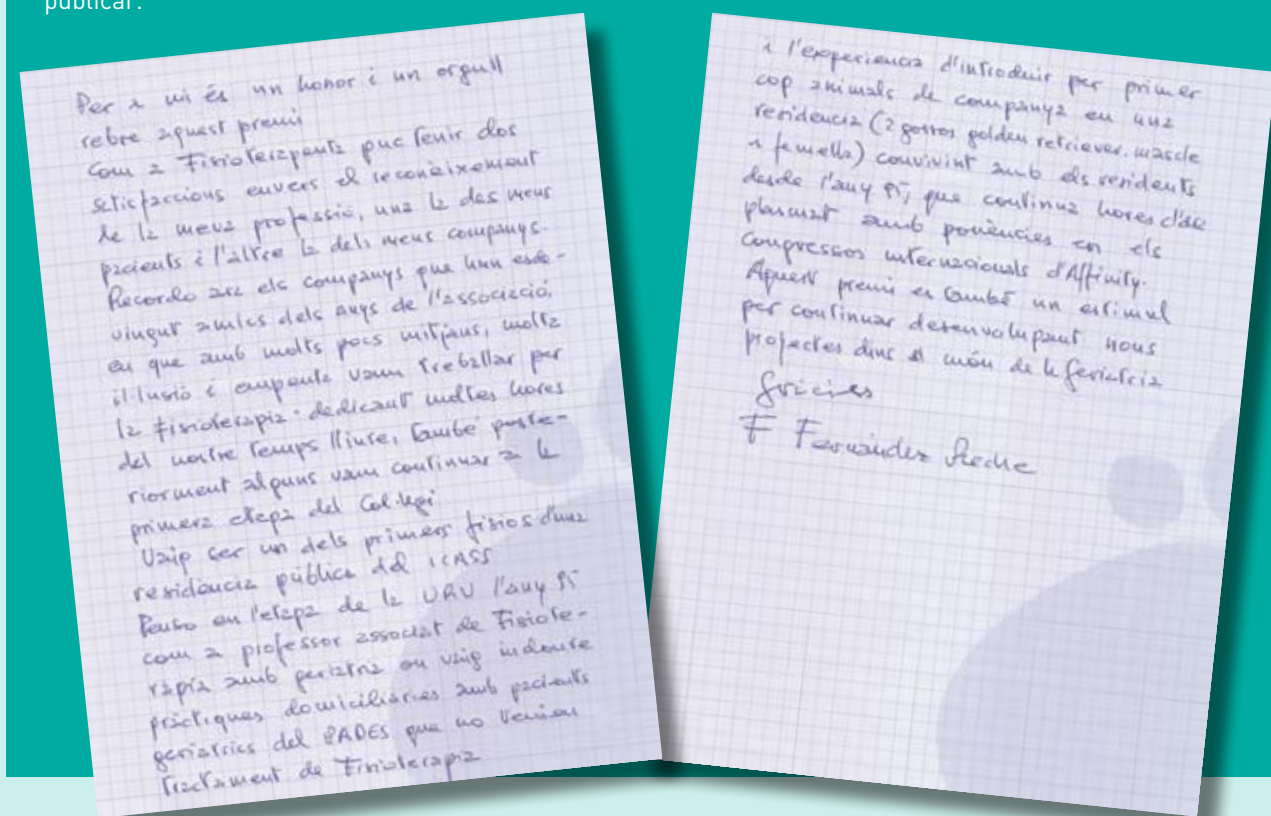 publicar.
Per a mi és un honor i un orgull
rebre aquest premi
Com a Fisioterapeuta puc tenir dos
satisfaccions envers el reconèixement
de la meva professió, una la des meus
pacients i l'altre la dels meus companys.
Recordo ara els companys que han esde-
vingut amics dels anys de l'associació,
en que amb molts pocs mitjans, molta
il·lusió i empenta vam treballar per
la fisioterapia. dedicant moltes hores
del nostre temps lliure, també poste-
riorment alguns vam continuar a la
primera etapa del Col·legi
Vaig ser un dels primers fisios d'una
residència pública del ICASS
Penso en l'etapa de la URV l'any
com a professor associat de Fisiote-
ràpia amb geriatria on vaig indoure
pràctiques domiciliaries amb pacients
geriatrics del PADES que no tenien
tractament de Fisioterapia
i l'experiencia d'introduir per primer
cop animals de companya en una
residencia (2 gossos golden retriever. mascle
i femella) convivint amb els residents
desde l'any que continua hores d'ara
plasmat amb ponències en els
congressos internacionals d'Affinity.
Aquest premi es també un estimul
per continuar desenvolupant nous
projectes dins el món de la geriatria
Gràcies
F Fernández